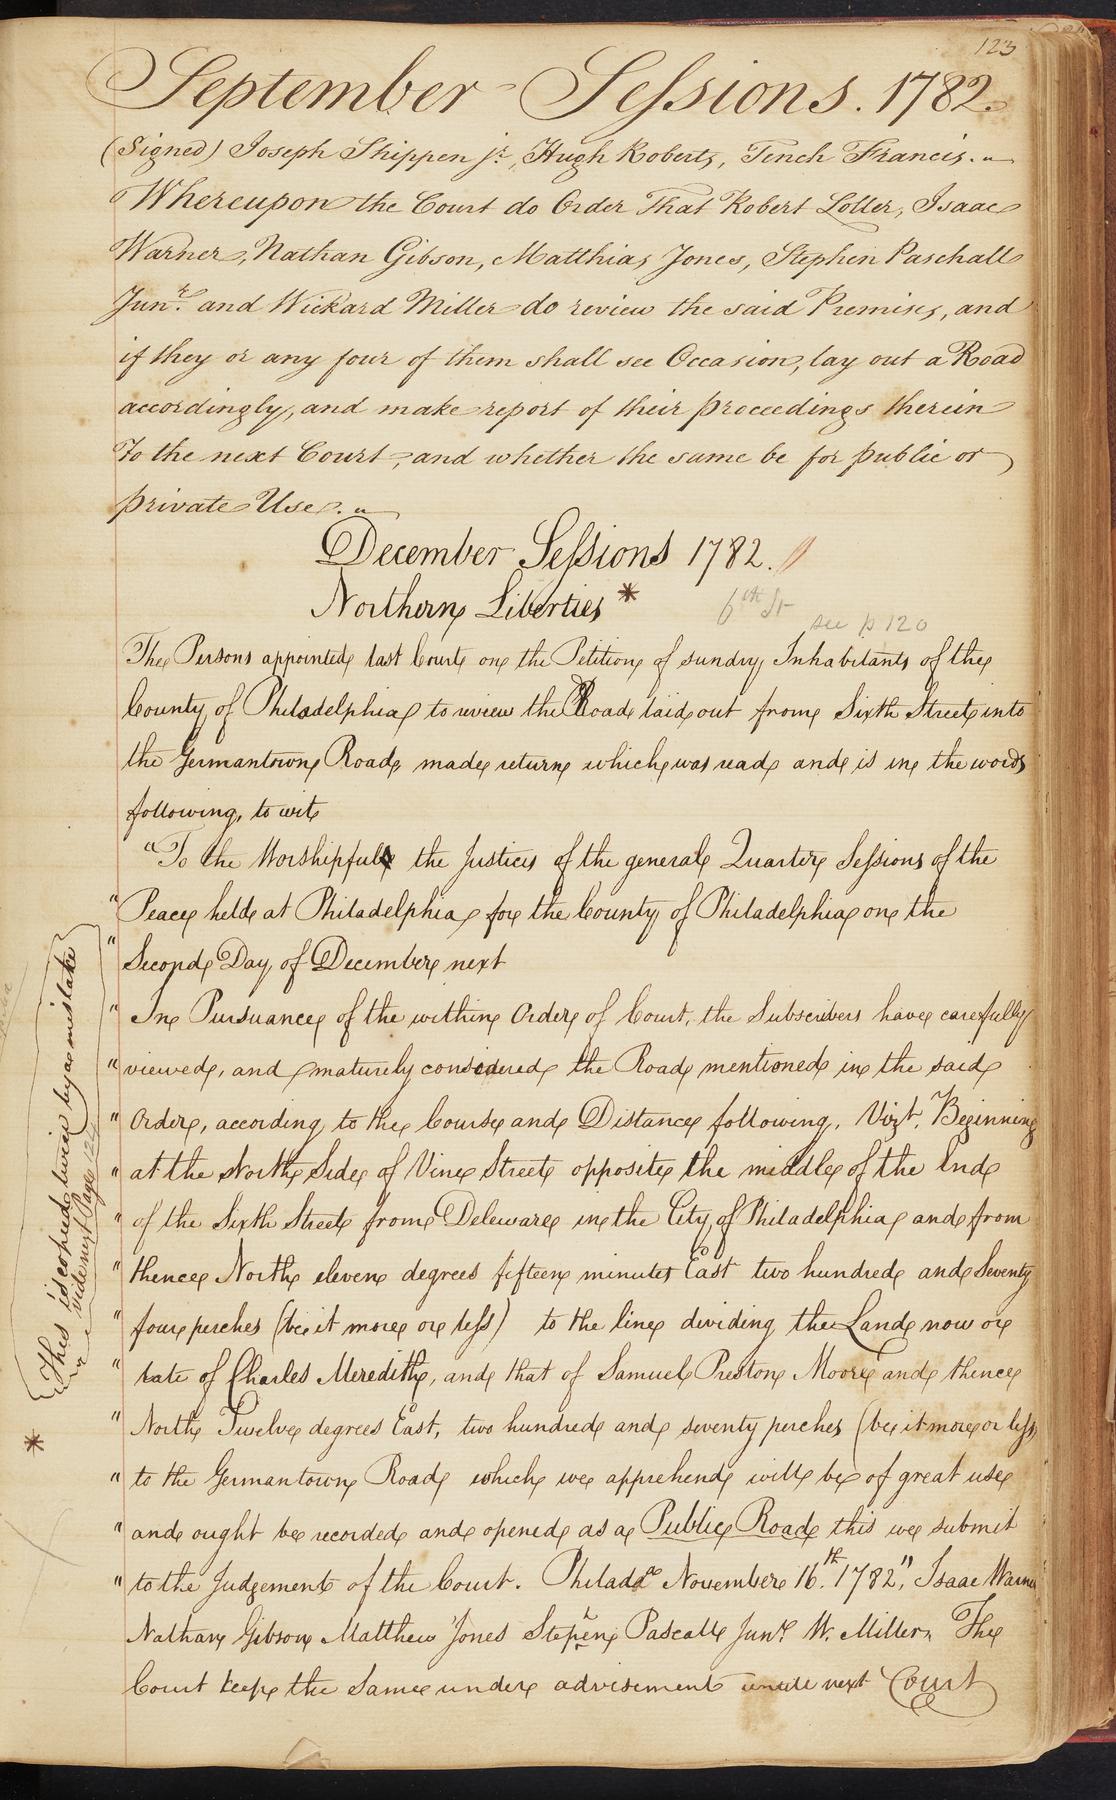 123
September Sessions. 1782.
(Signed) Joseph Shippen jr., Hugh Roberts, Tench Francis.
Whereupon the Court do Order That Robert Loller, Isaac
Warner, Nathan Gibson, Matthias Jones, Stephen Paschall
Junr. and Wickard Miller do review the said Premises, and
if they or any four of them shall see Occasion, lay out a Road
accordingly, and make report of their proceedings therein
To the next Court, and whether the same be for public or
private Use.
December Sessions 1782.
Northern Liberties *
6th St
see p 120
The Persons appointed last Court on the Petition of sundry Inhabitants of the
County of Philadelphia to review the Road laid out from Sixth Street into
the Germantown Road, made return which was read and is in the words
following, to wit
"To the Worshipful the Justices of the general Quarter Sessions of the
" Peace held at Philadelphia for the County of Philadelphia on the
" Second Day of December next
" In Pursuance of the within Order of Court, the Subscribers have carefully
" viewed, and maturely considered the Road mentioned in the said
" Order, according to the Course and Distance following, Vizt. Beginning
" at the North Side of Vine Street opposite the middle of the End
" of the Sixth Street from Deleware in the City of Philadelphia and from
" thence North eleven degrees fifteen minutes East two hundred and Seventy
" four perches (be it more or less) to the line dividing the Land now or
" late of Charles Meredith, and that of Samuel Preston Moore and thence
" North Twelve degrees East, two hundred and seventy perches (be it more or less)
" to the Germantown Road which we apprehend will be of great use
" and ought be recorded and opened as a Public Road this we submit
" to the Judgement of the Court. Philada. November 16.th 1782", Isaac Warner
Nathan Gibson Matthew Jones Stephen Pascall Junr. W. Miller. The
Court keep the Same under advisement untill next Court
This is copied twice by a mistake
vide next Page 124
*